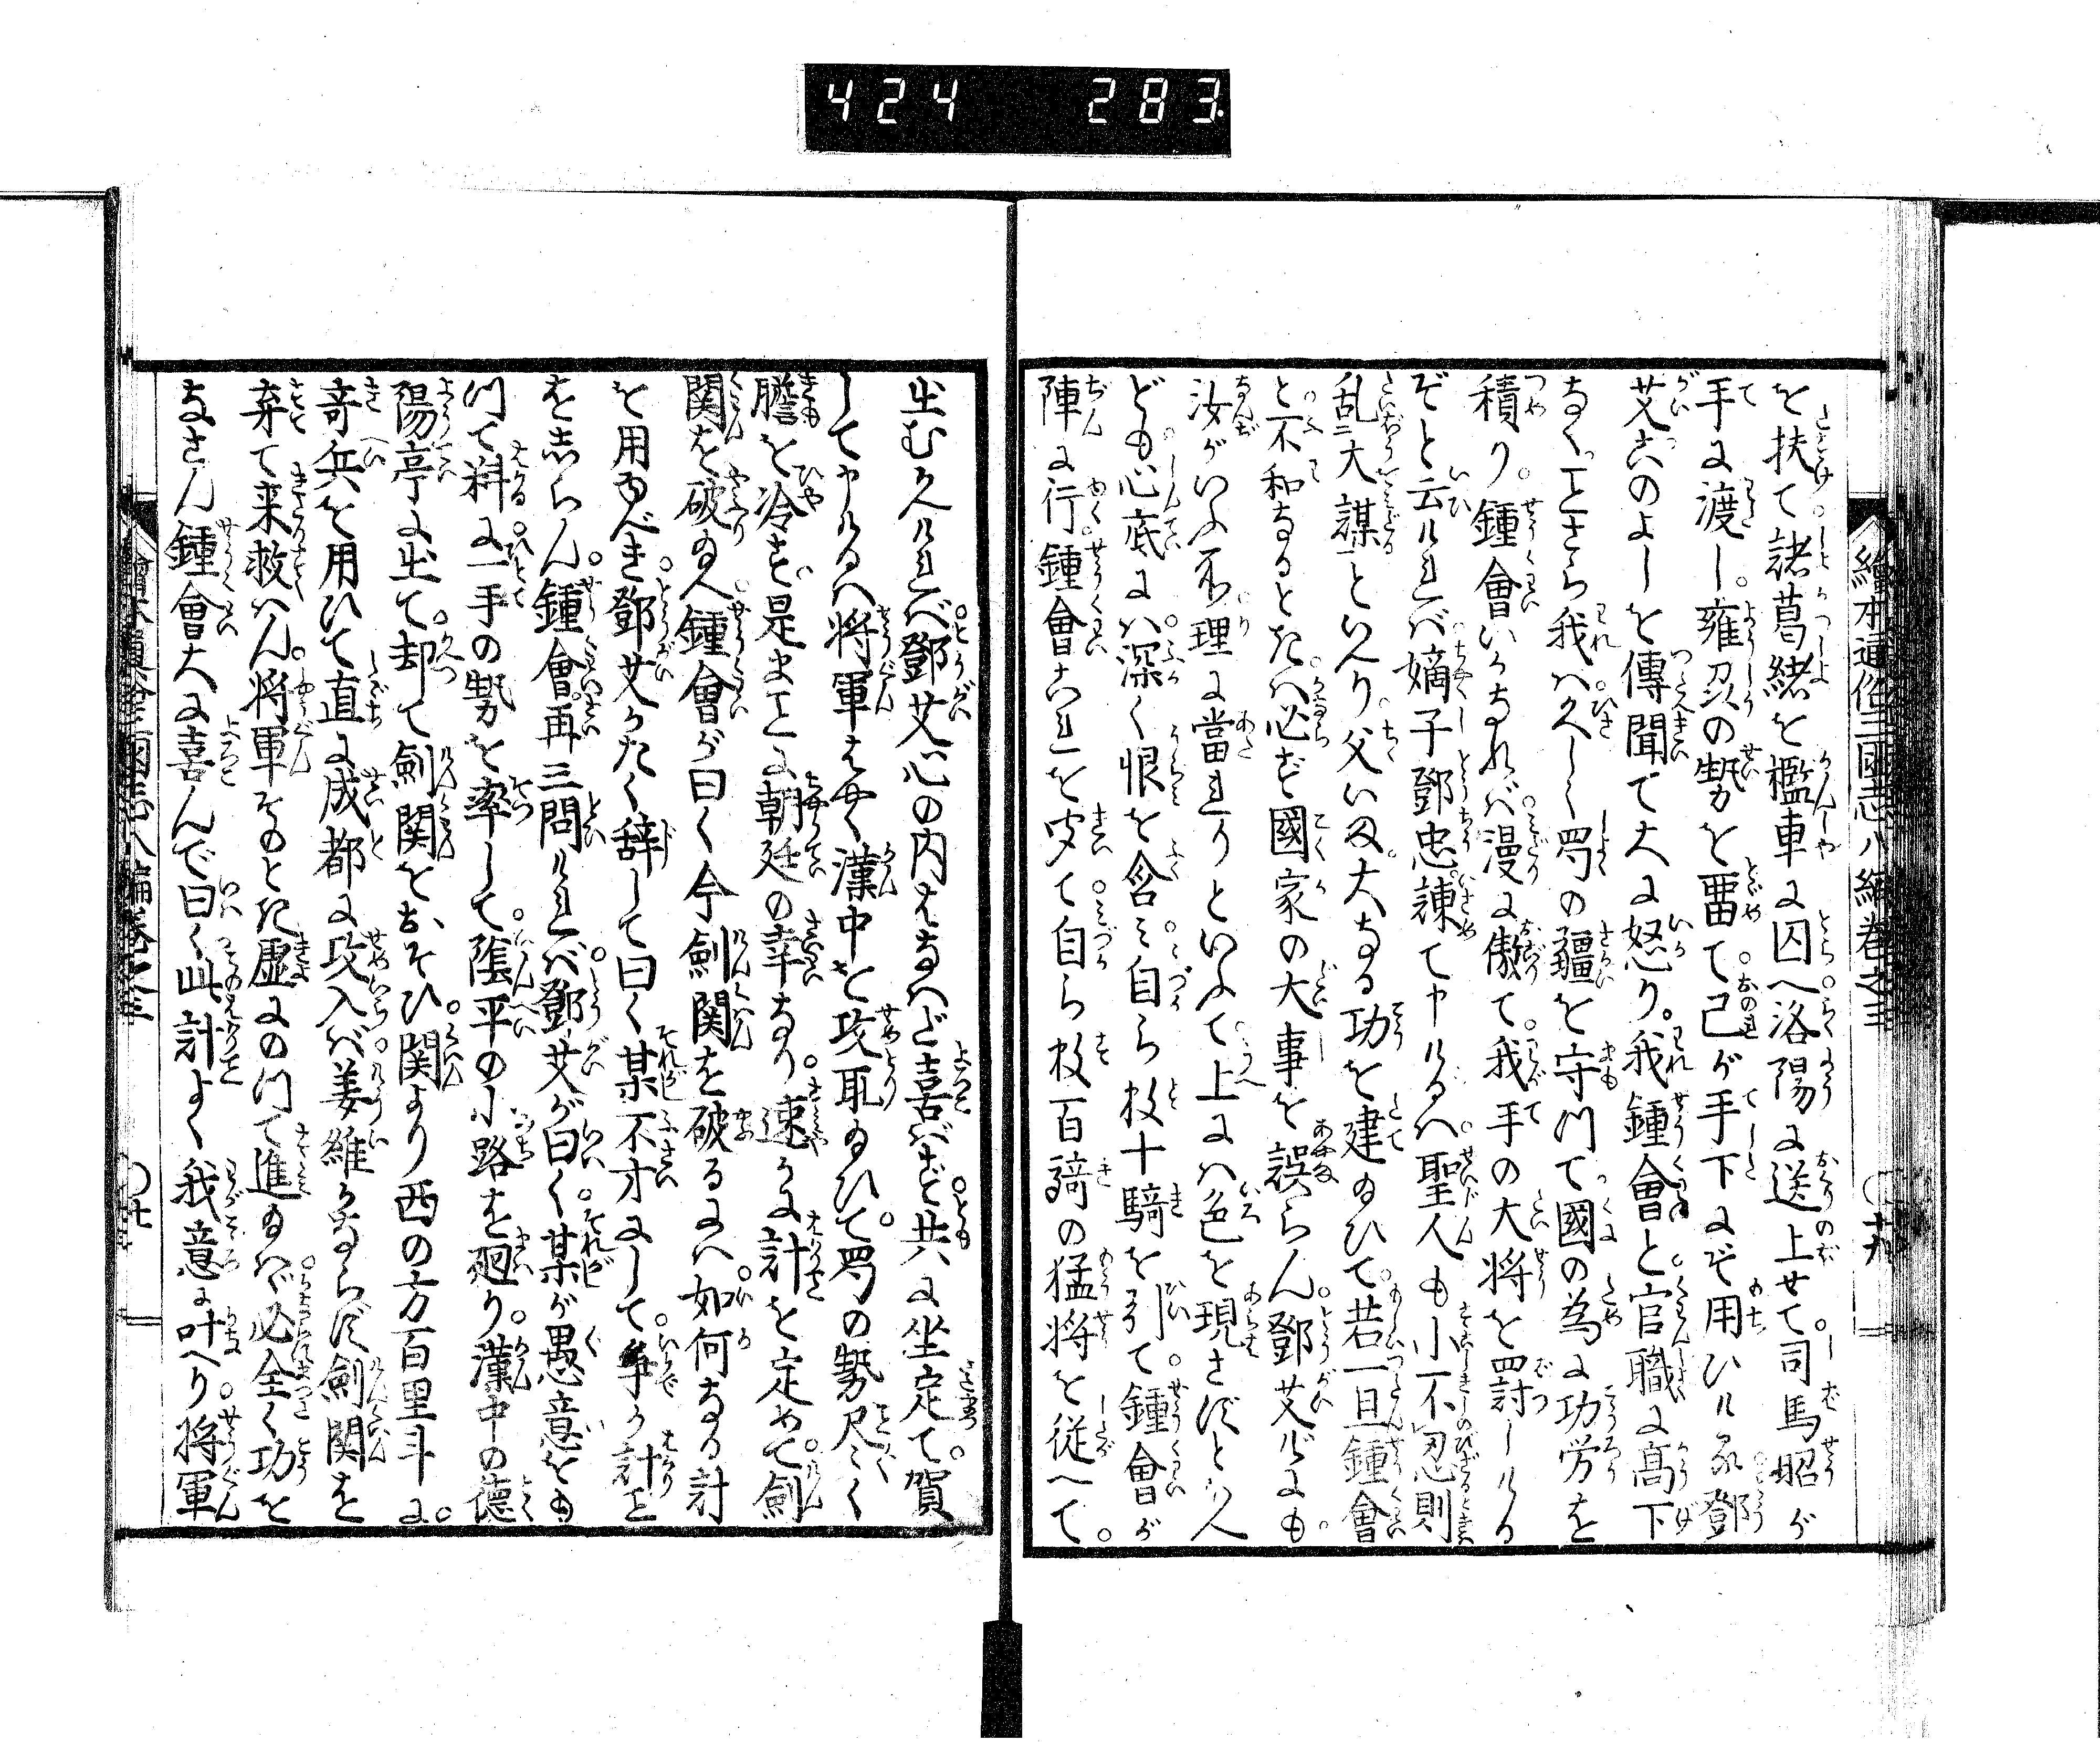 424 283
繪本通俗三國志八編卷之三
を扶て諸葛緒を檻車に囚へ洛陽に送上せて司馬昭が
手に渡し。雍州の勢を畱て己が手下にぞ用ひける鄧
艾このよしを傳聞て大に怒り。我鍾會と官職に髙下
なくことさら我ハ久しく蜀の疆を守りて國の為に功労を
積り。鍾會いかなれバ漫に傲て。我手の大将を罸しける
ぞと云けれバ嫡子鄧忠諌て申けるハ聖人も小不忍則
乱大謀といへり父いま大なる功を建給ひて。若一旦鍾會
と不和なるときハ必ず國家の大事を誤らん。鄧艾げにも
汝がいふ所理に當れりといふて上にハ色を現さずといへ
ども心底にハ深く恨を含ミ自ら数十騎を引て鍾會が
陣に行鍾會これを聞て自ら数百騎の猛将を従へて。
出むかへけれバ鄧艾心の内はなハだ喜バず共に坐定て。賀
して申けるハ将軍はやく漢中を攻取給ひて。蜀の勢尽く
膽を冷す。是まことに朝廷の幸なり。速かに計を定めて劍
関を破り給へ鍾會が曰く今劍関を破るにハ如何なる計
を用ゆべき鄧艾かたく辞して曰く某不才にして争か計こと
をしらん。鍾會再三問けれバ。鄧艾が曰く某が愚意をも
つて料に一手の勢を率して。隂平の小路を廻り。漢中の德
陽亭に出て。却て劍関をおそひ関より西の方百里斗に。
竒兵を用ひて直に成都に攻入バ姜維かならず劍関を
弃て来救ハん。将軍そのとき虚にのつて進給ハゞ必全く功を
なさん鍾會大に喜んで曰く此計よく我意に叶へり。将軍